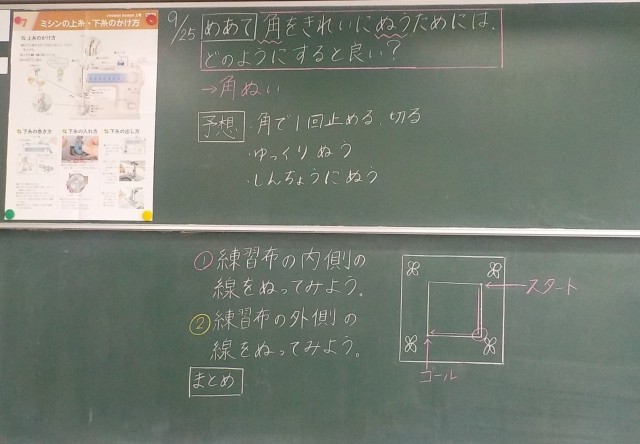 7 ミシンの上糸・下糸のかけ方
上糸のかけ方
下糸の巻き方
下糸の入れ方
下糸の出し方
9/25 めあて 角をきれいにぬうためには、
どのようにすると良い?
→角ぬい
予想 ・角で1回止める、切る
・ゆっくりぬう
・しんちょうにぬう
① 練習布の内側の
線をぬってみよう。
② 練習布の外側の
線をぬってみよう。
まとめ
スタート
ゴール